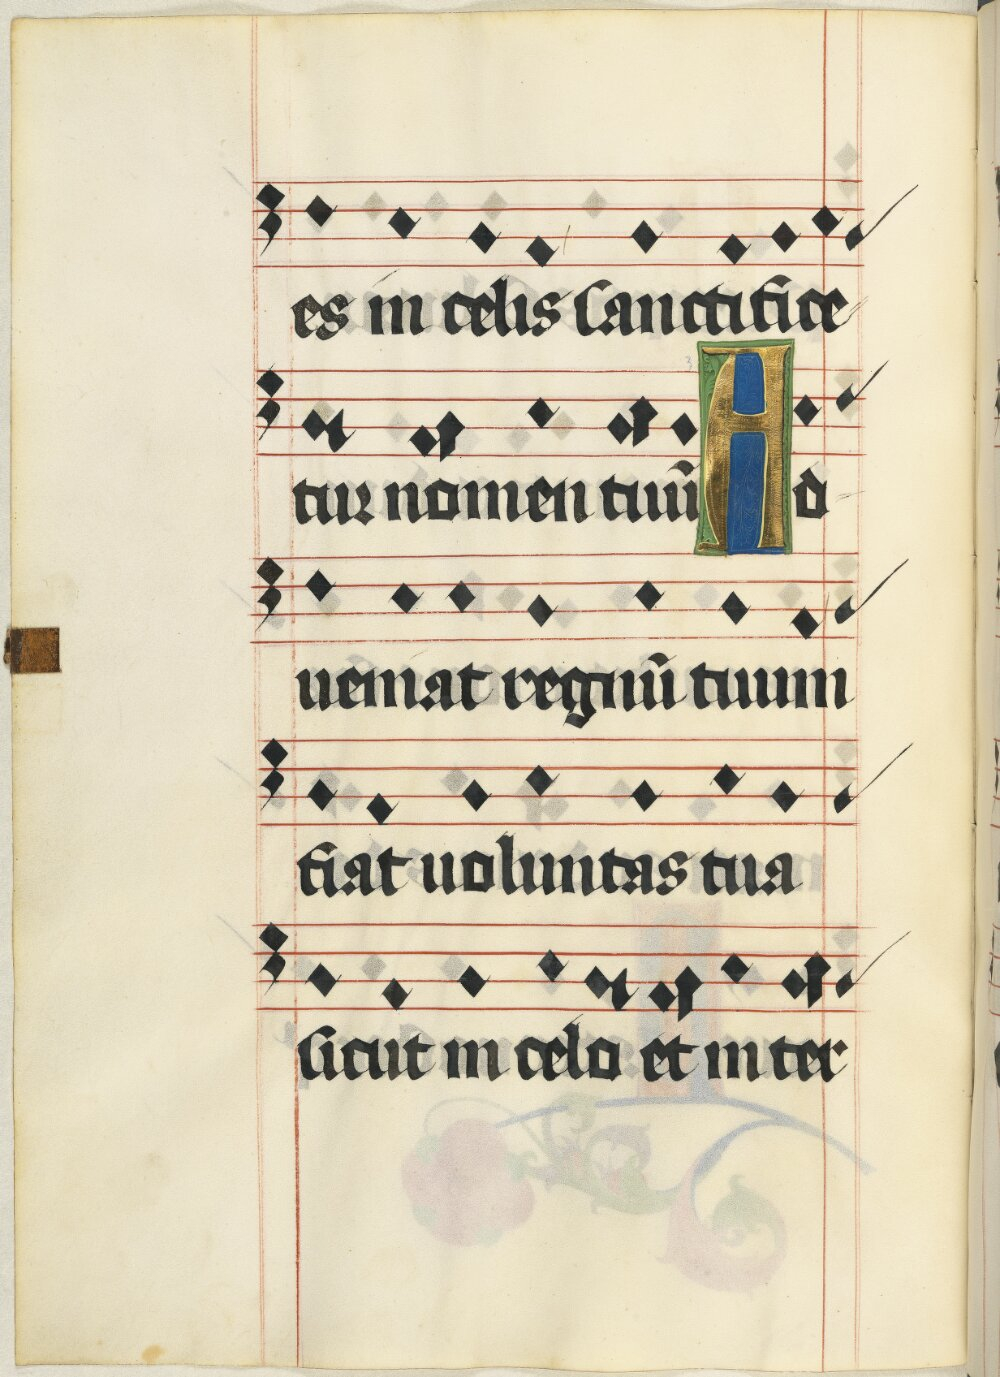 es in celis Sanctifice
tur nomen tuū Ad
ueniat regnū tuum
fiat uoluntas tua
sicut in celo et in ter